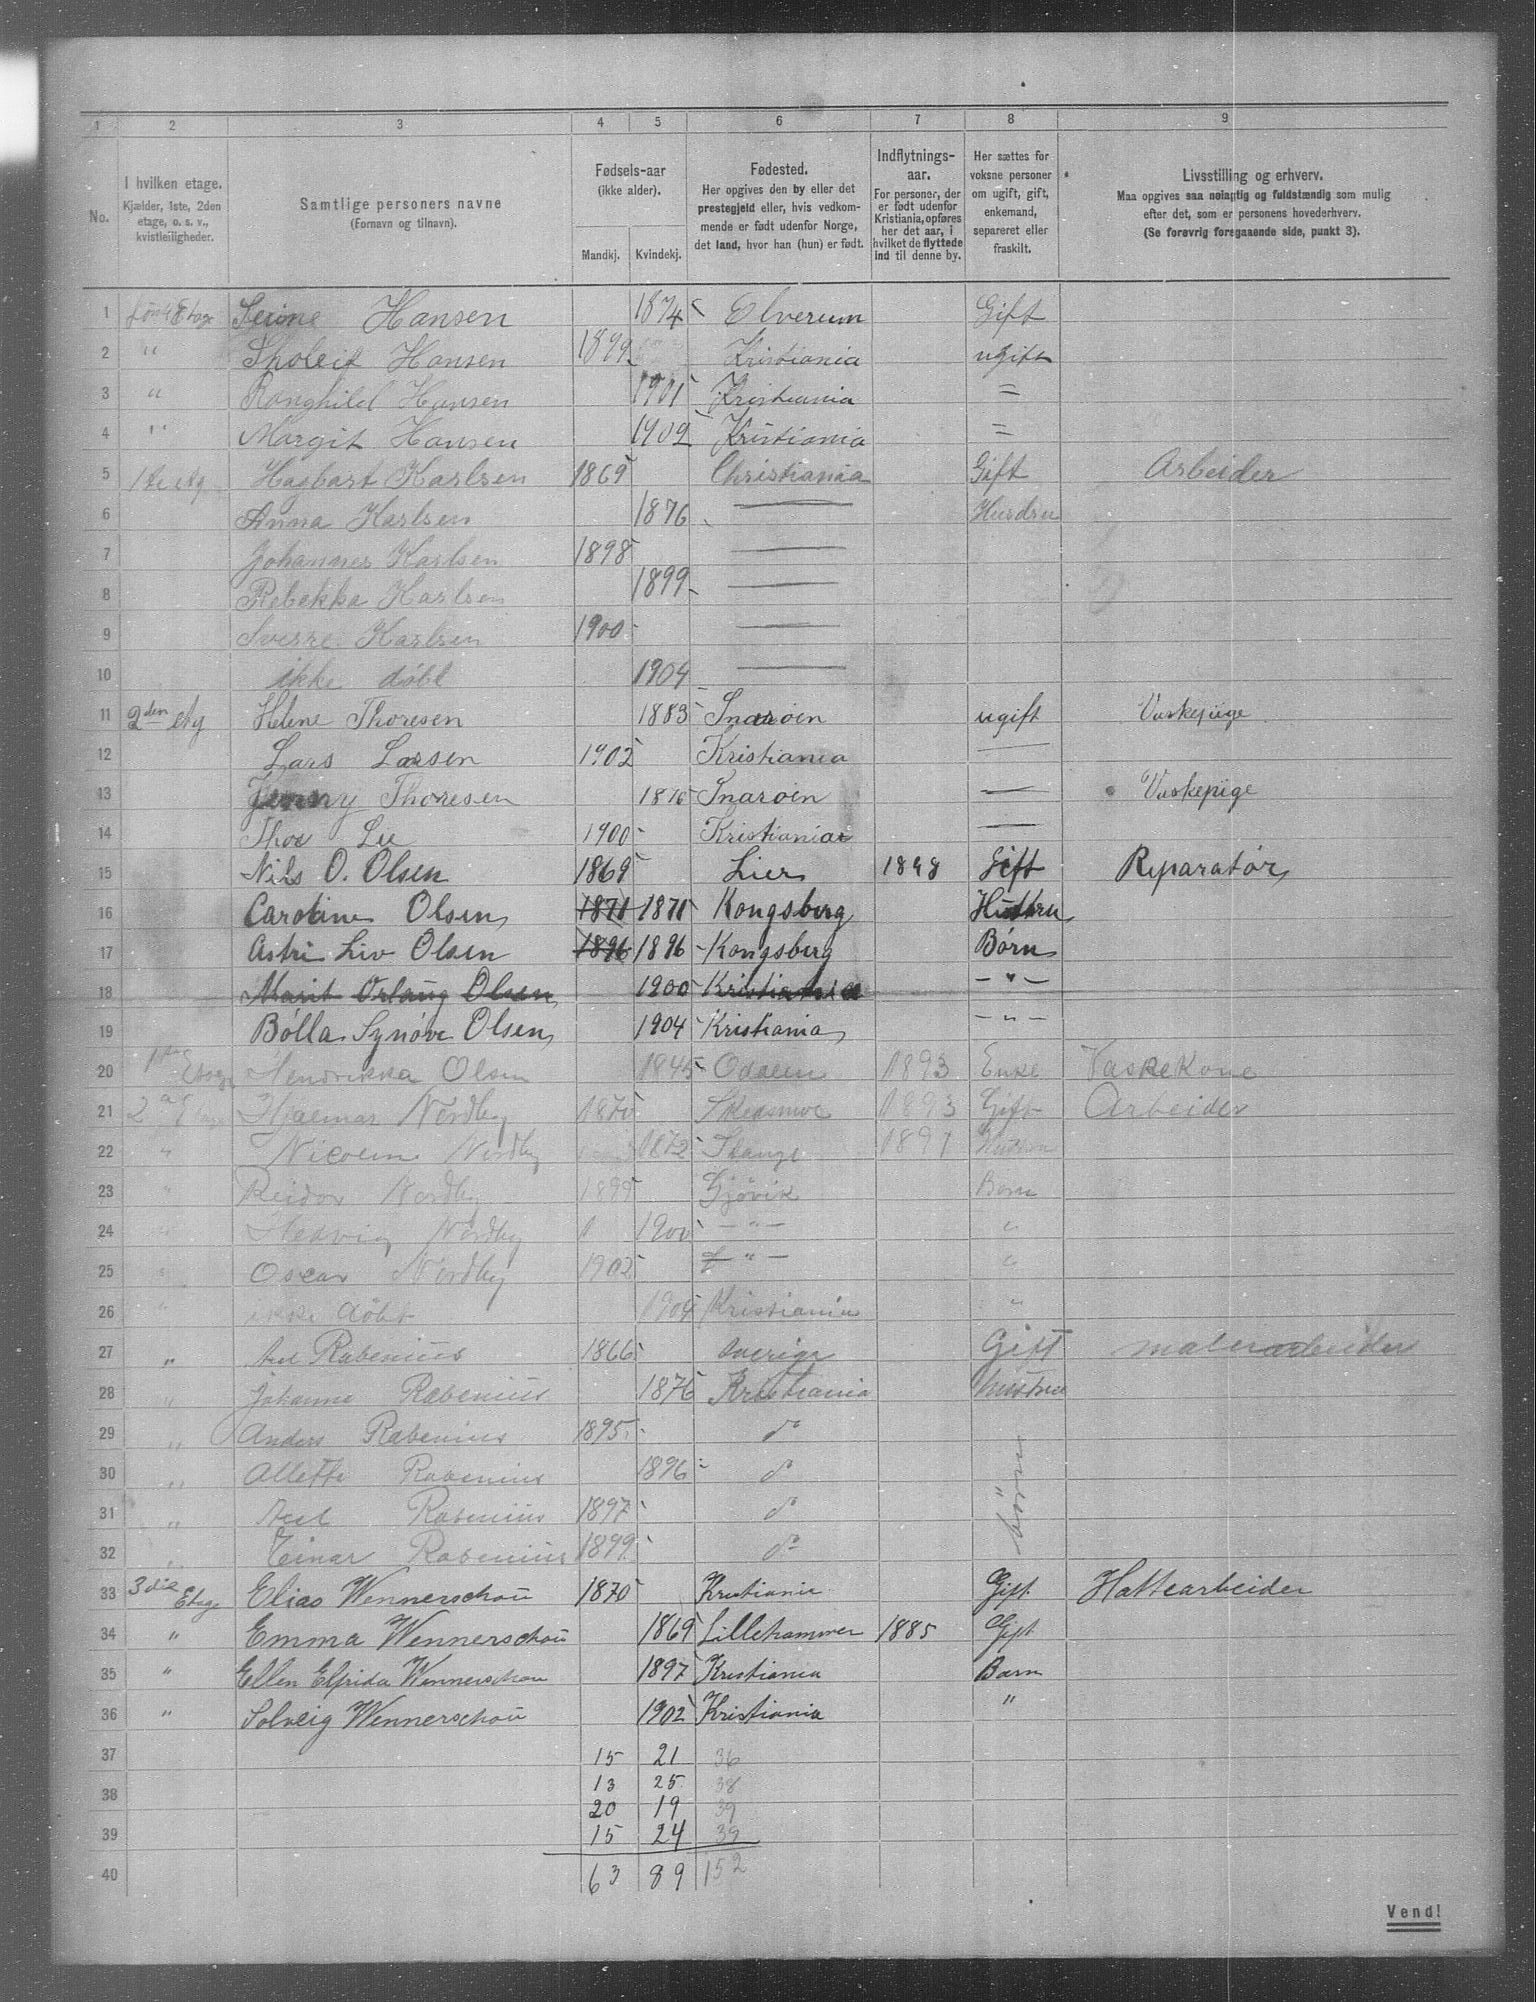 1 2 3 4 5 6 7 8 9
No.
I hvilken etage.
Kjælder, 1ste, 2den
etage, o. s. v.,
kvistleiligheder.
Samtlige personers navne
(Fornavn og tilnavn).
Fødsels-aar
(ikke alder).
Mandkj. Kvindekj.
Fødested.
Her opgives den by eller det
prestegjeld eller, hvis vedkom-
mende er født udenfor Norge,
det land, hvor han (hun) er født.
Indflytnings-
aar.
For personer, der
er født udenfor
Kristiania, opføres
her det aar, i
hvilket de flyttede
ind til denne by.
Her sættes for
voksne personer
om ugift, gift,
enkemand,
separeret eller
fraskilt.
Livsstilling og erhverv.
Maa opgives saa nøiagtig og fuldstændig som mulig
efter det, som er personens hovederhverv.
(Se forøvrig foregaaende side, punkt 3).
1 Etage Hansen 1874 Elverum Gift
2 " Hansen 1899 Kristiania ugift
3 " Ranghild Hansen 1901 Kristiania =
4 " Margit Hansen 1902 Kristiania =
5 1te etg Hagbart Karlsen 1869 Christiania Gift Arbeider
6 Anna Karlsen 1876 — Husdru
7 Johannes Karlsen 1898 —
8 Rebekka Karlsen 1899 —
9 Sverre Karlsen 1900 —
10 ikke døbt 1904 —
11 2den etg Helene Thoresen 1883 Snarøen ugift Vaskepige
12 Lars Larsen 1902 Kristiania —
13 Jenny Thoresen 1876 Snarøen — Vaskepige
14 Thor Lie 1900 Kristiania —
15 Nils O. Olsen 1869 Lier 1898 Gift Reparatør
16 Caroline Olsen 1871 1871 Kongsberg Hustru
17 Astri Liv Olsen 1896 1896 Kongsberg Børn
18 Marit Orlaug Olsen 1900 Kristiania — " —
19 Bølla Synøve Olsen 1904 Kristiania — " —
20 1ste Etage Hendrikka Olsen 1845 Odalen 1893 Enke Vaskekone
21 2 Etage Hjalmar Nordby 1870 Skedsmoe 1893 Gift Arbeider
22 " Nicoline Nordby 1872 Stange 1891 Hustru
23 " Reidar Nordby 1899 Gjøvik Børn
24 " Hedvig Nordby 1900 — " — "
25 " Oscar Nordby 1902 — " — "
26 " ikke døbt 1904 Kristiania "
27 " Axel Rabenius 1866 Sverige Gift malerarbeider
28 " Johanne Rabenius 1876 Kristiania hustru
29 " Anders Rabenius 1895 do
30 " Alletta Rabenius 1896 do
børn
31 " Axel Rabenius 1897 do
32 " Einar Rabenius 1899 do
33 3die Etage Elias Wennerschou 1870 Kristiania Gift Hattearbeider
34 " Emma Wennerschou 1869 Lillehammer 1885 Gift
35 " Ellen Elfrida Wennerschou 1897 Kristiania Barn
36 " Solveig Wennerschou 1902 Kristiania "
37 15 21 36
13 25 38
38
20 19 39
39 15 24 39
40 63 89 152
Vend!